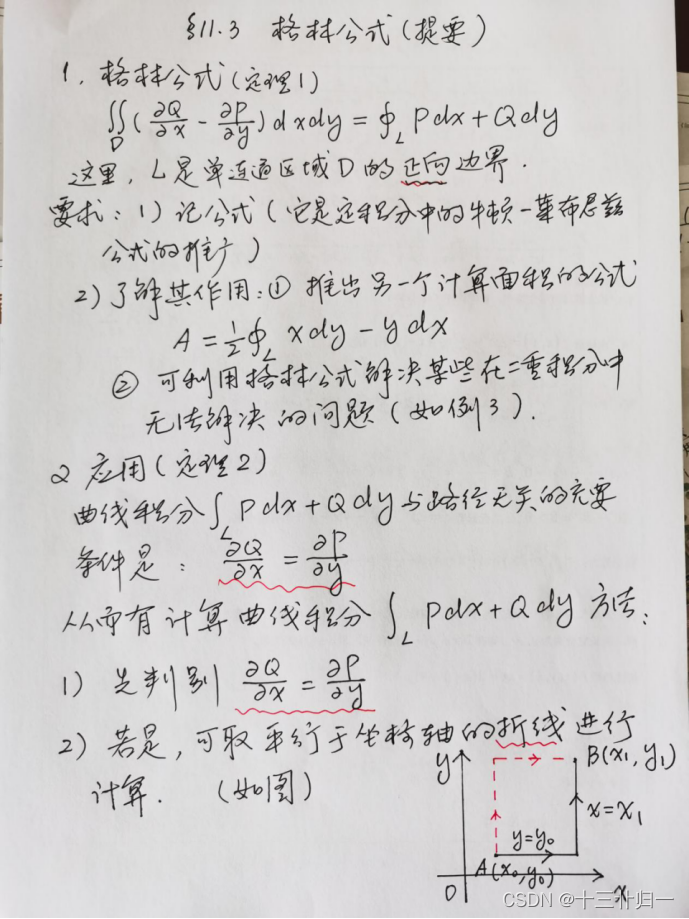 §11.3 格林公式(提要)
1. 格林公式(定理1)
∬_D (∂Q/∂x - ∂P/∂y) dxdy = ∮_L Pdx + Qdy
这里, L是单连通区域D的正向边界.
要求: 1) 记公式(它是定积分中的牛顿-莱布尼兹
公式的推广)
2) 了解其作用: ① 推出另一个计算面积的公式
A = 1/2 ∮_L xdy - ydx
② 可利用格林公式解决某些在二重积分中
无法解决的问题(如例3).
2 应用(定理2)
曲线积分 ∫_L Pdx + Qdy 与路径无关的充要
条件是: ∂Q/∂x = ∂P/∂y
从而有计算曲线积分 ∫_L Pdx + Qdy 方法:
1) 先判别 ∂Q/∂x = ∂P/∂y
2) 若是, 可取平行于坐标轴的折线进行
计算. (如图)
y
B(x₁, y₁)
x=x₁
y=y₀
A(x₀, y₀)
0
x
CSDN @十三补归一